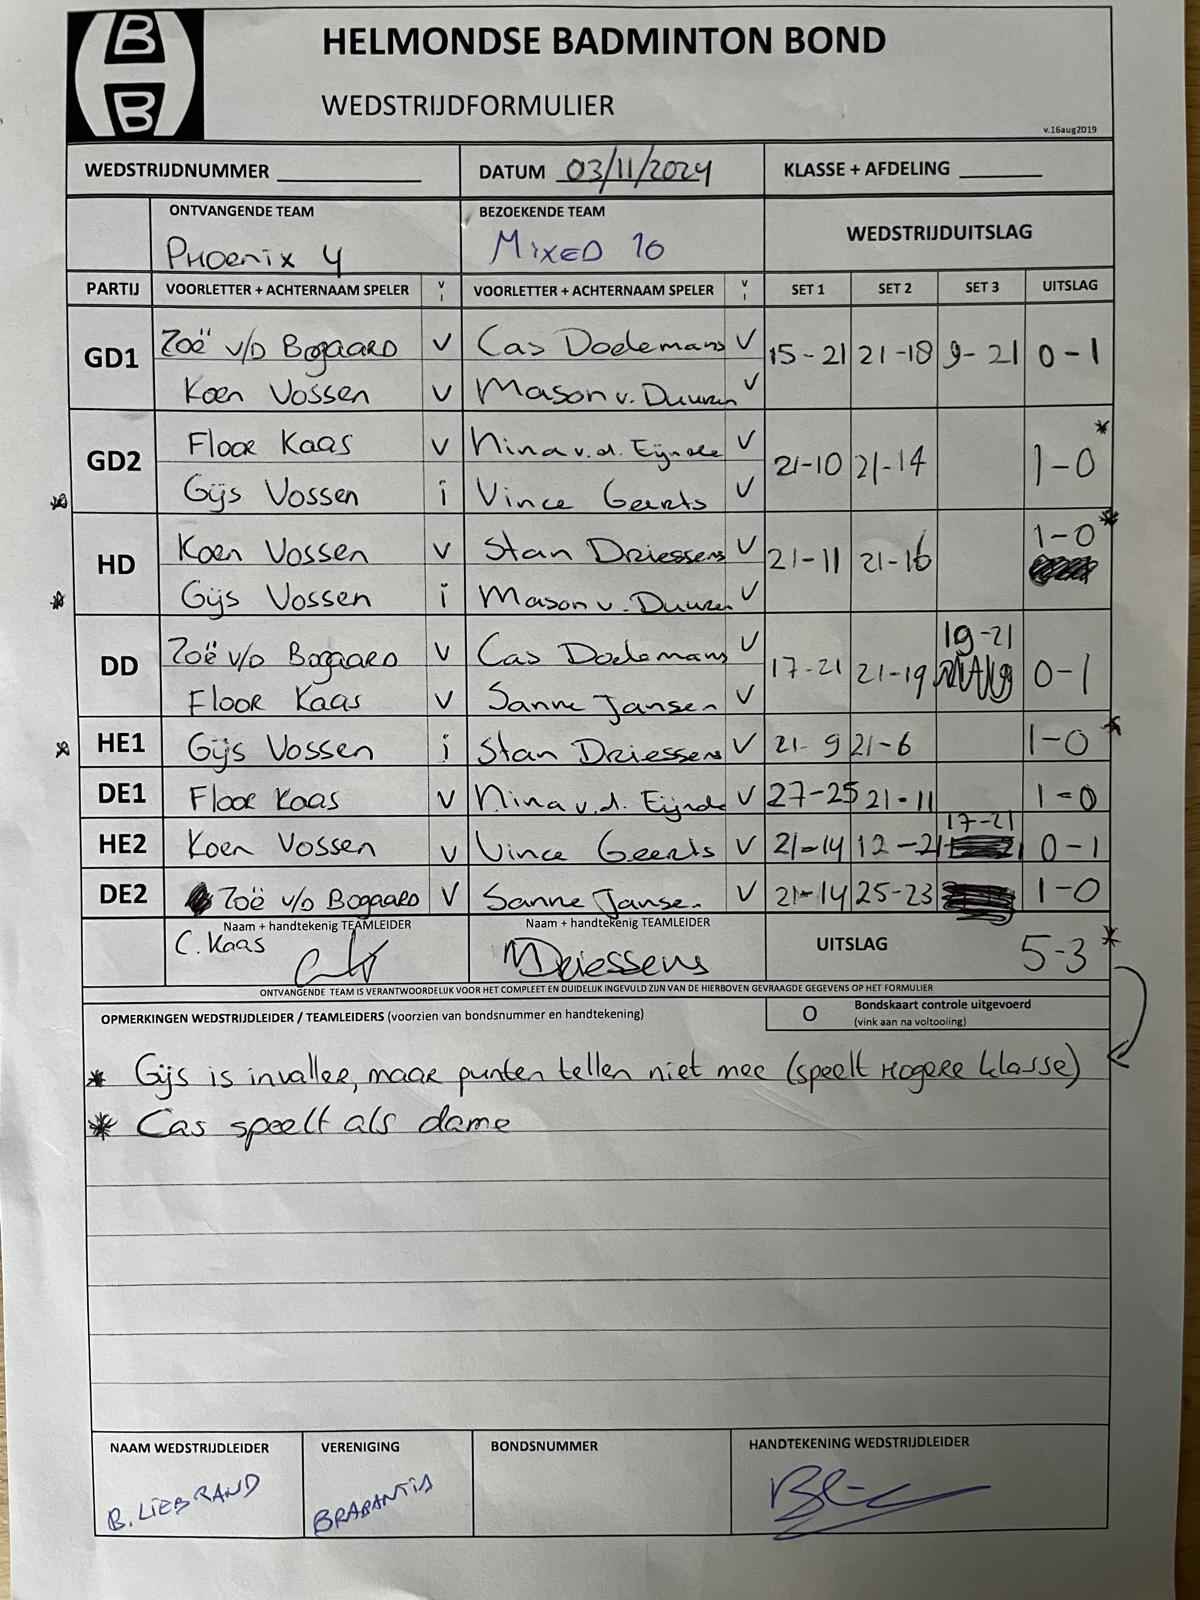 B
B
HELMONDSE BADMINTON BOND
WEDSTRIJDFORMULIER
v.16aug2019
WEDSTRIJDNUMMER DATUM 03/11/2024 KLASSE + AFDELING
ONTVANGENDE TEAM BEZOEKENDE TEAM WEDSTRIJDUITSLAG
Phoenix 4 MIXED 10
PARTIJ VOORLETTER + ACHTERNAAM SPELER V I VOORLETTER + ACHTERNAAM SPELER V I SET 1 SET 2 SET 3 UITSLAG
GD1 Zoë v/d Bogaard V Cas Dodemans V 15-21 21-18 9-21 0-1
Koen Vossen V Mason v. Duuren V
GD2 Floor Kaas V Nina v.d. Eijnde V 21-10 21-14 1-0 *
* Gijs Vossen i Vince Geerts V
HD Koen Vossen V Stan Driessens V 21-11 21-16 1-0 *
* Gijs Vossen i Mason v. Duuren V
DD Zoë v/d Bogaard V Cas Dodemans V 17-21 21-19 19-21 0-1
Floor Kaas V Sanne Jansen V
* HE1 Gijs Vossen i Stan Driessens V 21-9 21-6 1-0 *
DE1 Floor Kaas V Nina v.d. Eijnde V 27-25 21-11 1-0
HE2 Koen Vossen V Vince Geerts V 21-14 12-21 17-21 0-1
DE2 Zoë v/d Bogaard V Sanne Jansen V 21-14 25-23 1-0
Naam + handtekenig TEAMLEIDER Naam + handtekenig TEAMLEIDER UITSLAG 5-3 *
C. Kaas MDriessens
ONTVANGENDE TEAM IS VERANTWOORDELIJK VOOR HET COMPLEET EN DUIDELIJK INGEVULD ZIJN VAN DE HIERBOVEN GEVRAAGDE GEGEVENS OP HET FORMULIER
OPMERKINGEN WEDSTRIJDLEIDER / TEAMLEIDERS (voorzien van bondsnummer en handtekening) O Bondskaart controle uitgevoerd
(vink aan na voltooiing)
* Gijs is invaller, maar punten tellen niet mee (speelt hogere klasse)
* Cas speelt als dame
NAAM WEDSTRIJDLEIDER VERENIGING BONDSNUMMER HANDTEKENING WEDSTRIJDLEIDER
B. LIEBRAND BRABANTIA